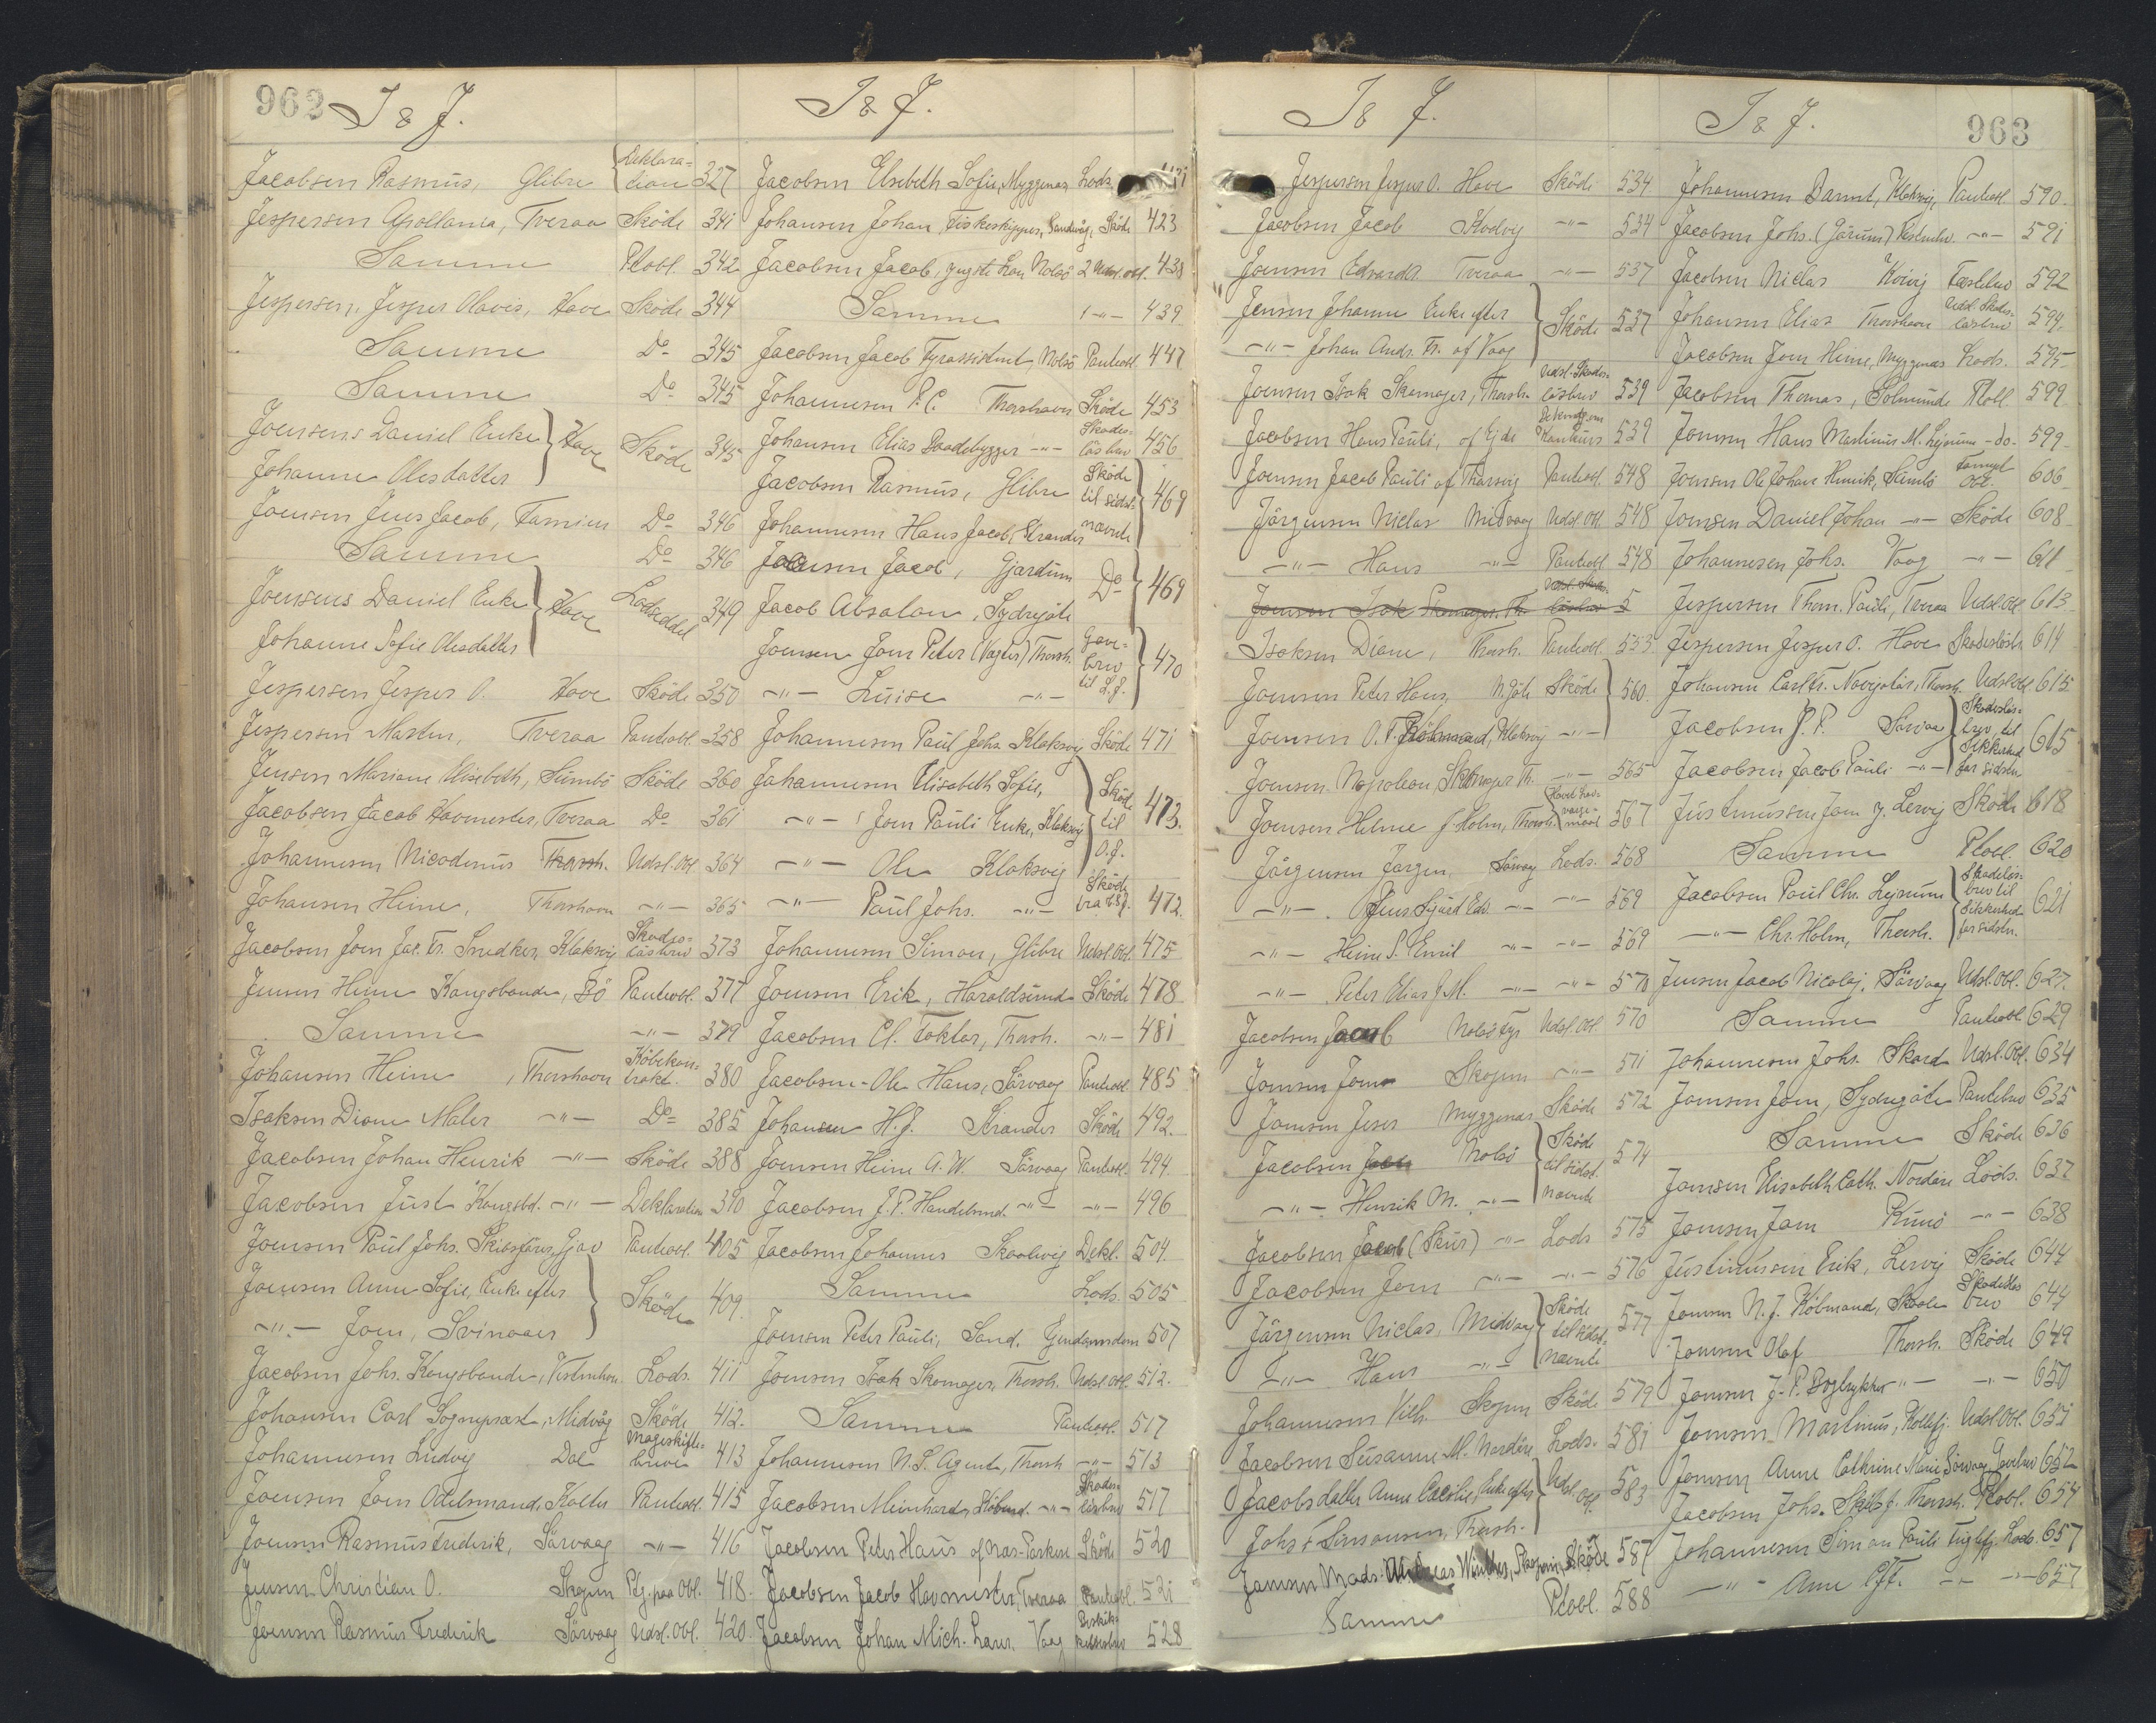 962 I & J.
Jacobsen Rasmus, Glibre Deklaration 327
Jespersen Apollonia, Tveraa Sköde 341
Samme Ptobl. 342
Jespersen, Jesper Olavis, Hove Sköde 344
Samme Do 345
Samme Do 345
Joensens Daniel Enke
Johanne Olesdatter } Hove Sköde 345
Joensen Jens Jacob, Famien Do 346
Samme Do 346
Joensens Daniel Enke
Johanne Sofie Olesdatter } Hove Lodseddel 349
Jespersen Jesper O. Hove Sköde 350
Jespersen Morten, Tveraa Panteobl. 358
Jensen Mariane Elisebeth, Sumbö Sköde 360
Jacobsen Jacob Havnester, Tveraa Do 361
Johannesen Nicodemus Thorsh. Udsl. Obl. 364
Johansen Heine, Thorshavn -"- 365
Jacobsen Joen Jac. Fr. Snedker, Klaksvig Skadeslösbrev 373
Jensen Heine Kongsbonde, Bö Panteobl. 377
Samme -"- 379
Johansen Heine, Thorshavn Köbekontrakt 380
Isaksen Diane Maler -"- Do 385
Jacobsen Johan Henrik -"- Sköde 388
Jacobsen Just Kongsbd. -"- Deklaration 390
Joensen Poul Johs. Skibsförer, Gjov Panteobl. 405
Joensen Anne Sofie, Enke efter
-"- Joen, Svinaaer } Sköde 409
Jacobsen Johs. Kongsbonde, Vestmhvn. Lods. 411
Johansen Carl Sognepræst, Midvåg Sköde 412.
Johannesen Ludvig Dal Mageskiftebrev 413
Joensen Joen Odelsmand, Kolter Panteobl. 415
Joensen Rasmus Frederik, Sörvaag -"- 416
Jensen Christian O. Skopun Ptg. paa Obl. 418
Joensen Rasmus Frederik Sörvaag Udsl. Obl. 420
I & J.
Jacobsen Elsebeth Sofie, Myggenæs Lods.
Johansen Johan, Fiskeskipper, Sandvåg, Sköde 423
Jacobsen Jacob, yngste Leon Nolsö 2 Udsl. obl. 438
Samme 1 -"- 439
Jacobsen Jacob Fyrassistent, Nolsö Panteobl. 447
Johannesen P. C. Thorshavn Sköde 453
Johansen Elias Baadebygger -"- Skadeslösbrev 456
Jacobsen Rasmus, Glibre
Johannesen Hans Jacob, Strender Sköde til sidstnævnte } 469
Joensen Jacob, Gjardum
Jacob Absalon, Sydregöte Do } 469
Joensen Joen Peter (Vagter) Thorsh.
-"- Luise -"- Gavebrev til L. J. } 470
Johannesen Poul Johs. Klaksvig Sköde 471
Johannesen Elisabeth Sofie,
-"- Joen Pauli Enke, Klaksvig
-"- Ole Klaksvig Sköde til O. J. } 473.
-"- Poul Johs. -"- Sköde fra 473. 472.
Johannesen Simon, Glibre Udsl. Obl. 475
Joensen Erik, Haraldsund Sköde 478
Jacobsen Cl. Faktor, Thorsh. -"- 481
Jacobsen Ole Hans, Sörvaag Panteobl. 485
Johansen H. J. Strender Sköde 492.
Joensen Heine A. W. Sörvaag Panteobl. 494
Jacobsen J. P. Handelsmd. -"- -"- 496
Jacobsen Johannes Skaalevig Dekl. 504.
Samme Lods. 505
Joensen Peter Pauli, Sand. Ejendomsdom 507
Joensen Isak Skomager, Thorsh. Udsl. Obl. 512.
Samme Panteobl. 517
Johannesen N. S. Agent, Thorsh -"- 513
Jacobsen Meinhardt, Köbmd. -"- Skadeslösbrev 517
Jacobsen Peter Hans of Næs-Porkere Sköde 520
Jacobsen Jacob Havnester, Tveraa Panteobl. 521
Jacobsen Johan Mich. Laur. Vaag 528
I & J.
Jespersen Jesper O. Hove Sköde 534
Jacobsen Jacob Hvalvig -"- 534
Joensen Edvard A. Tveraa -"- 537
Jensen Johanne Enke efter
-"- Johan Andr. Fr. af Vaag } Sköde 537
Joensen Isak Skomager, Thorsh. Udsl. Skadeslösbrev 539
Jacobsen Hans Pauli, af Ejde Bekendtg. om Konkurs 539
Joensen Jacob Pauli af Thorsvig Panteobl. 548
Jörgensen Niclas Midvaag Udsl. Obl. 548
-"- Hans -"- Panteobl. 548
Joensen Isak Skomager, Th. 5
Isaksen Diane, Thorsh. Panteobl. 553
Joensen Peter Hans, N. Göte Sköde
Joensen O. F. Köbmand, Klaksvig -"- } 560
Joensen Napoleon, Skomager Th. -"- 565
Joensen Helene f. Holm, Thorsh. 567
Jörgensen Jørgen, Sörvaag Lods. 568
-"- Jens Sigurd Edv. -"- -"- 569
-"- Heine S. Emil -"- -"- 569
-"- Peter Elias J. M. -"- -"- 570
Jacobsen Jacob Nolsö Fyr Udsl. Obl. 570
Joensen Joen Skopun -"- 571
Joensen Jens Myggenæs Sköde 572
Jacobsen Nolsö
-"- Henrik M. -"- Sköde til sidstnævnte } 574
Jacobsen Jacob (Skur) -"- Lods 575
Jacobsen Joen -"- -"- 576
Jörgensen Niclas, Midvaag
-"- Hans -"- Sköde til sidstnævnte } 577
Johannesen Vilh. Skopun Sköde 579
Jacobsen Susanne M. Nordöre Lods. 581
Jacobsdatter Anne Cecilie, Enke efter
Johs. F. Simonsen, Thorsh. } Udsl. Obl. 583
Joensen Mads Andreas Winther, Sköde 587
Samme Ptobl. 588
I & J. 963
Johannesen Berent, Klaksvig, Panteobl. 590.
Jacobsen Johs. (Görum) Vestmhv. -"- 591
Jacobsen Niclas Kvivig Fæstebrev 592
Johansen Elias Thorshavn Udsl. Skadeslösbrev 594.
Jacobsen Joen Heine, Myggenæs Lods. 595
Jacobsen Thomas, Solmunde Ptobl 599
Joensen Hans Martinus M. Lejnum -do- 599
Joensen Ole Johan Henrik, Sumbö Fornyet Obl. 606
Joensen Daniel Johan -"- Sköde 608
Johannesen Johs. Vaag -"- 611
Jespersen Thom. Pauli, Tveraa Udsl. Obl. 613
Jespersen Jesper O. Hove Skadeslösbr. 614
Johansen Carl Fr. Navigatör, Thorsh. Udsl. Obl. 615
Jacobsen J. P. Sörvaag
Jacobsen Jacob Pauli -"- Skadeslösbrev til Sikkerhed for sidstn. } 615
Justinussen Joen J. Lervig Sköde 618
Samme Ptobl. 620
Jacobsen Poul Chr. Lejnum
-"- Chr. Holm, Thorsh. Skadeslösbrev til Sikkerhed for sidstn. } 621
Jensen Jacob Nicolaj, Sörvaag Udsl. Obl. 627.
Samme Panteobl. 629
Johannesen Johs. Skard Udsl. Obl. 634
Joensen Joen, Sydregöte Pantebrev 635
Samme Sköde 636
Joensen Elisabeth Cath. Nordöre Lods. 637
Joensen Joen Kunö -"- 638
Justinussen Erik, Lervig Sköde 644
Joensen N. J. Köbmand, Skaale Skadeslösbrev 644
Joensen Olaf Thorsh. Sköde 649
Joensen J. P. Bogtrykker -"- -"- 650
Joensen Martinus, Kollefj. Udsl. Obl. 651
Joensen Anne Cathrine Marie Sörvaag, Gavebrev 652
Jacobsen Johs. Skibsf. Thorsh. Ptobl. 654
Johannesen Simon Pauli Fuglefj. Lods. 657
-"- Anne -"- -"- 657